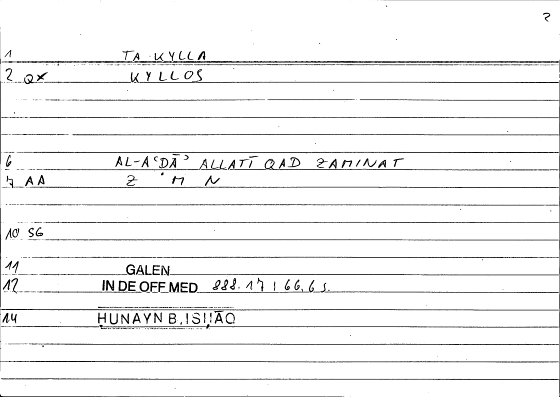 2
1 TA KYLLA
2 QX KYLLOS
6 AL-AʿDĀʾ ALLATĪ QAD ZAMINAT
7 AA Z M N
10 SG
11 GALEN
12 IN DE OFF MED 888.17 | 66,6 s.
14 HUNAYN B. ISḤĀQ